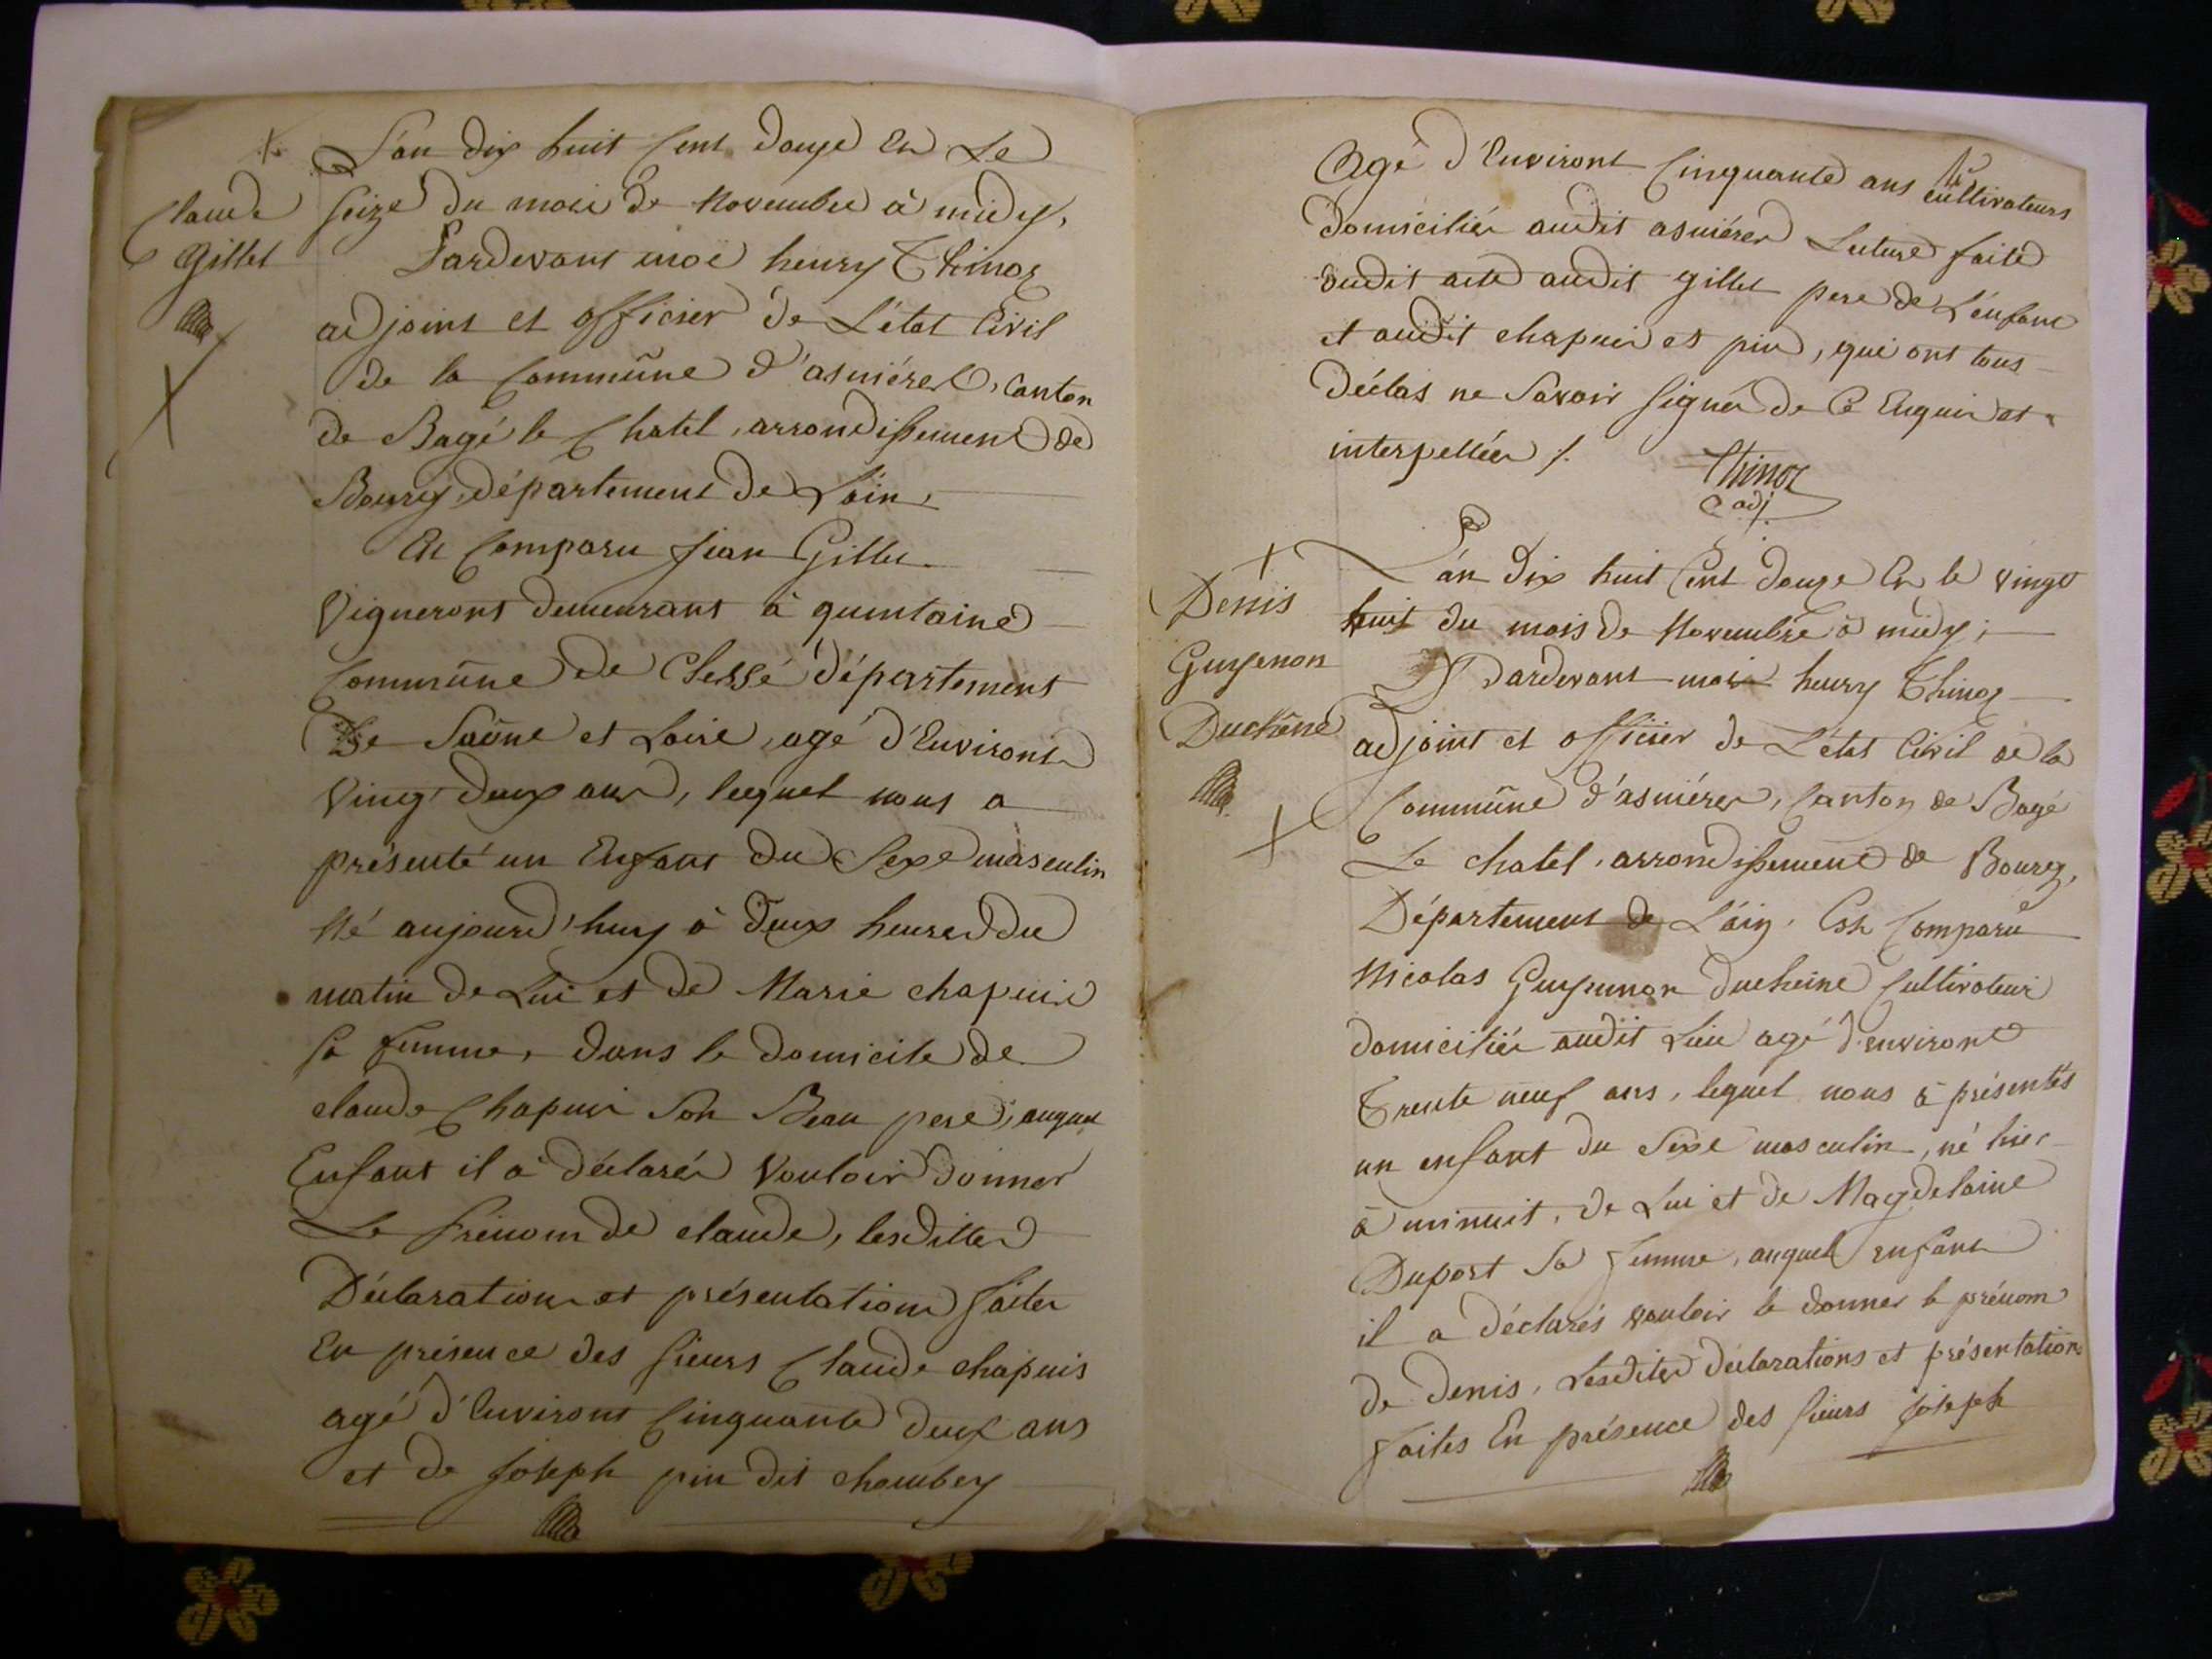 L'an dix huit Cent douze En Le
Claude
Gillet
seize du mois de Novembre à midy,
Pardevant moi henry Thinoz
adjoint et officier de L'état Civil
de la Commune d'asniéres, Canton
de Bagé le Chatel, arrondissement de
Bourg, département de Lain,
Est Comparu Jean Gillet
Vigneront demeurant à quintaine
Commune de Clessé département
De Saône et Loire, agé d'Environt
Vingt deux ans, lequel nous a
présenté un Enfant du Sexe masculin
Né aujourd'huy à deux heures du
matin de Lui et de Marie chapuis
sa femme, dans le domicile de
claude Chapuis Son Beau pere, auquel
Enfant il à déclarér Vouloir donner
Le Prénom de claude, lesdittes
Déclaration et présentation faites
En présence des sieurs Claude chapuis
agé d'Environt Cinquante deux ans
et de Joseph pin dit chambey
Agé d'Environt Cinquante ans cultivateurs
domiciliér audit asniéres Lecture faite
dudit acte audit gillet pere de L'enfant
et audit chapuis et pin, qui ont tous
déclas ne Savoir signér de Ce Enquis et
interpellér /.
Thinoz
adj
Denis
Guyenon
Duchêne
L'an dix huit Cent douze En le vingt
huit du mois de Novembre à midy;
Pardevant moi henry Thinoz
adjoint et officier de L'état Civil de la
Commune d'asniéres, Canton de Bagé
Le chatel, arrondissement de Bourg,
Département de L'ain, Est Comparu
Nicolas Guyennon Ducheine Cultivateur
domiciliér audit Lieu agé d'environt
Trente neuf ans, lequel nous à présentés
un enfant du Sexe masculin, né hier
à minuit, de Lui et de Magdelaine
Duport Sa femme, auquel enfant
il a déclarés vouloir le donner le prénom
de Denis, Lesdites déclarations et présentation
faites En présence des sieurs Joseph